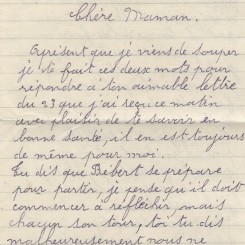 Chère Maman.
Aprésent que je viens de souper
je te fait ces deux mots pour
répondre a ton aimable lettre
du 23 que j'ai reçu ce matin
avec plaisir de te savoir en
bonne santé, il en est toujours
de même pour moi.
Tu dis que Bébert se prépare
pour partir, je pense qu'il doit
commencer a réfléchir, mais
chacun son tour, toi tu dis
malheureusement nous ne